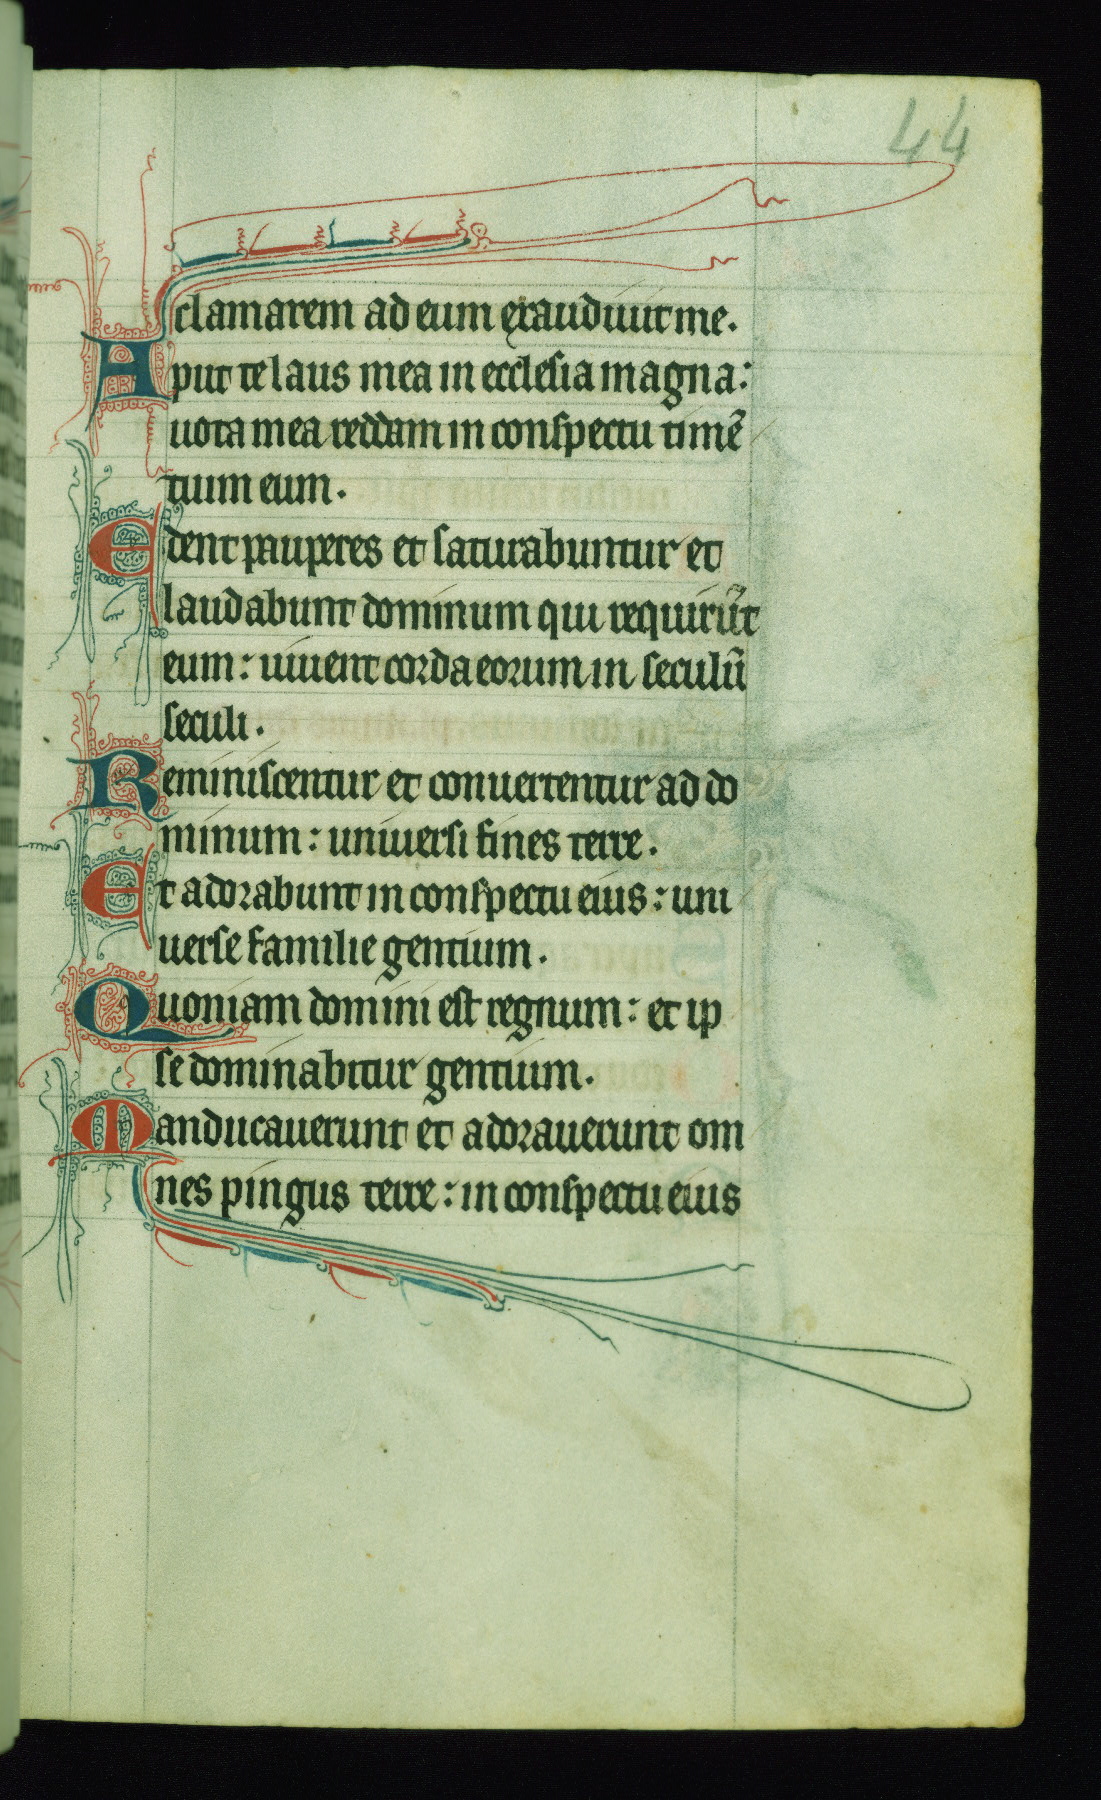 44
clamarem ad eum exaudiuit me.
Aput te laus mea in ecclesia magna:
uota mea reddam in conspectu timē
tium eum.
Edent pauperes et saturabuntur et
laudabunt dominum qui requirūt
eum: uiuent corda eorum in seculū
seculi.
Reminiscentur et conuertentur ad do
minum: uniuersi fines terre.
Et adorabunt in conspectu eius: uni
uerse familie gentium.
Quoniam domini est regnum: et ip
se dominabitur gentium.
Manducauerunt et adorauerunt om
nes pingus terre: in conspectu eius